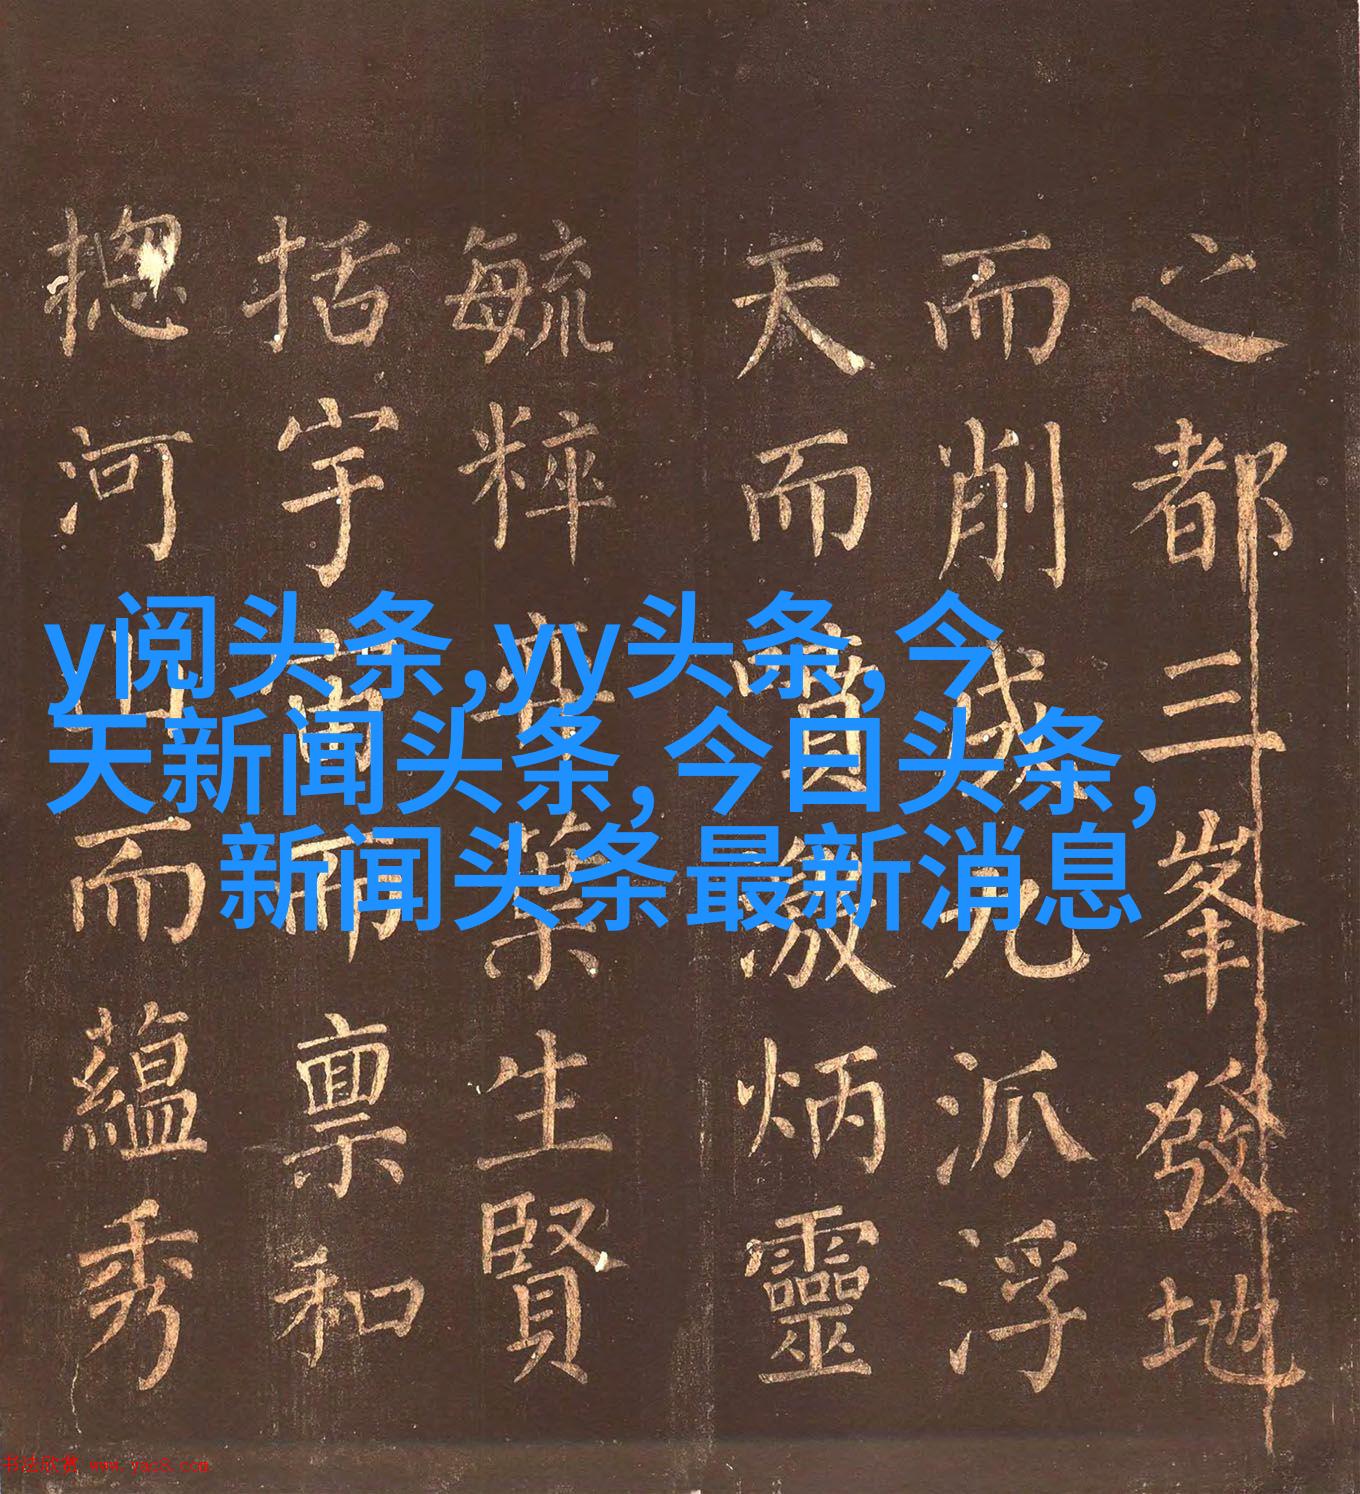 y阅头条,yy头条, 今
天新闻头条, 今日头条,
新闻头条最新消息
之都三峯發地
而削成九派浮
天而噴激炳靈
毓粹弈葉生賢
括宇宙而禀和
摠河山而蘊秀
书法欣赏 www.yac8.com